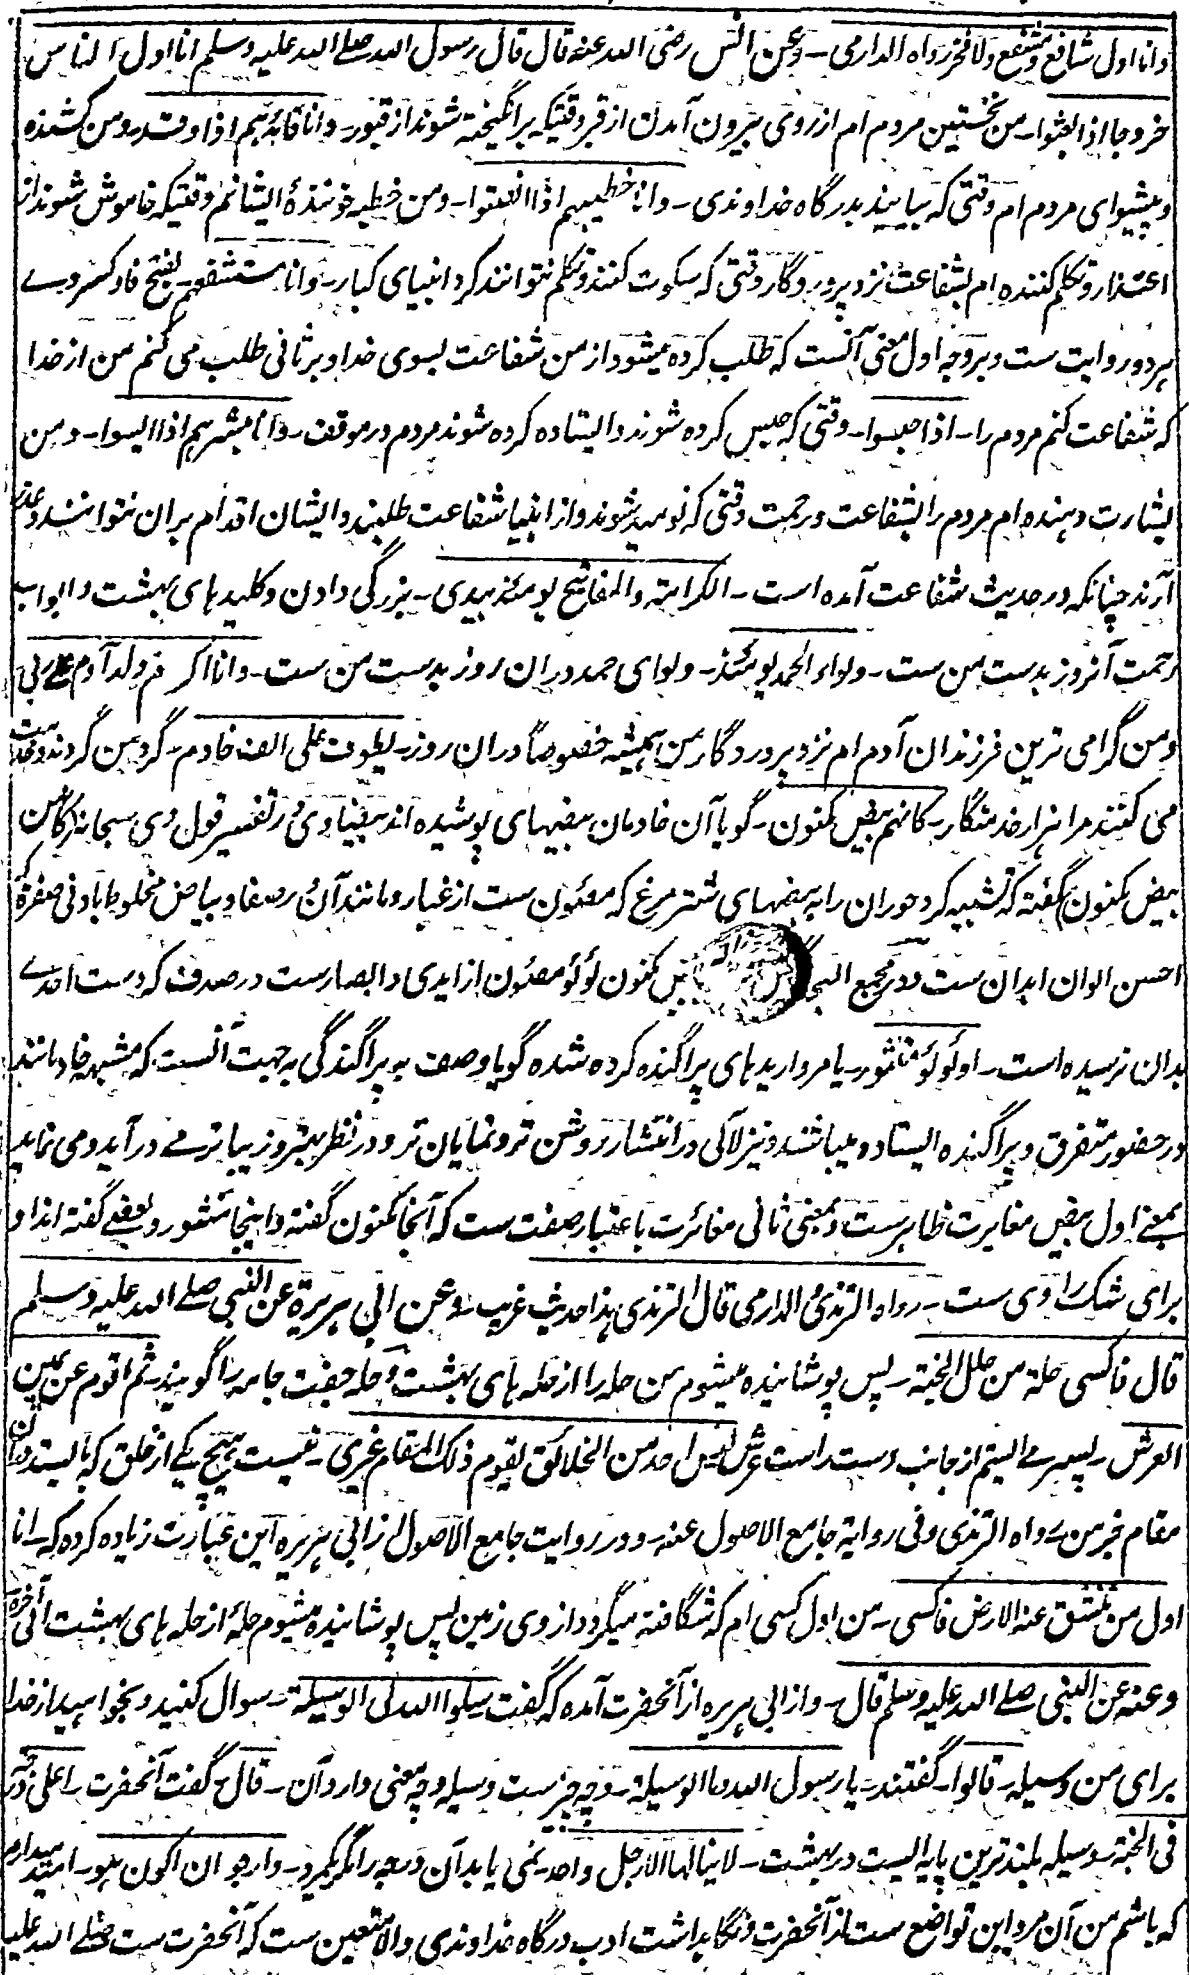 وانا اول شافع ومشفع ولا فخر رواه الدارمی ـ وعن انس رضی الله عنه قال قال رسول الله صلے الله علیه وسلم انا اول الناس
خروجا اذا بعثوا ـ من نخستین مردم ام از روی بیرون آمدن از قبر وقتیکه برانگیخته شوند از قبور ـ وانا قائدهم اذا وفدوا ـ ومن کشنده
و پیشوای مردم ام وقتی که بیایند بدرگاه خداوندی ـ وانا خطیبهم اذا انصتوا ـ ومن خطبه خوننده ایشانم وقتیکه خاموش شوند از
اعتذار و تکلم کننده ام بشفاعت نزد پروردگار وقتی که سکوت کنند و تکلم نتوانند کرد انبیای کبار ـ وانا مستشفعهم ـ بفتح فا و کسر وے
هر دو روایت ست و بر وجه اول معنی آنست که طلب کرده میشود از من شفاعت بسوی خدا و بر ثانی طلب می کنم من از خدا
که شفاعت کنم مردم را ـ اذا حبسوا ـ وقتی که حبس کرده شوند و ایستاده کرده شوند مردم در موقف ـ وانا مبشرهم اذا ایسوا ـ ومن
بشارت دهنده ام مردم را بشفاعت و رحمت وقتی که نومید شوند و از انبیا شفاعت طلبند و ایشان اقدام بران نتوانند و عذر
آرند چنانکه در حدیث شفاعت آمده است ـ الکرامة والمفاتیح یومئذ بیدی ـ بزرگی دادن و کلیدهای بهشت و ابواب
رحمت آنروز بدست من ست ـ ولواء الحمد یومئذ ـ ولوای حمد دران روز بدست من ست ـ وانا اکرم ولد آدم علے ربی
ومن گرامی ترین فرزندان آدم ام نزد پروردگار من همیشه خصوصاً دران روز ـ یطوف علی الف خادم ـ گرد من گردند و خدمت
می کنند مرا هزار خدمتگار ـ کانهم بیض مکنون ـ گویا آن خادمان بیضهای پوشیده اند بیضاوی در تفسیر قول وی سبحانه (کانهن
بیض مکنون) گفته که تشبیه کرد حوران را به بیضهای شتر مرغ که مصئون ست از غبار و مانند آن در صفا و بیاض مخلوط با دنی صفرة که
احسن الوان ابدان ست و در مجمع البحار گفته بیض مکنون لؤلؤ مصئون از ایدی و ابصارست در صدف که دست احدے
بدان نرسیده است ـ او لؤلؤ منثور ـ یا مرواریدهای پراگنده کرده شده گویا وصف به پراگندگی به جهت آنست که مشبه خادمانند
در حضور متفرق و پراگنده ایستاده میباشند و نیز لآلی در انتشار روشن تر و نمایان تر و در نظر بهتر و زیباتر مے در آید و می نماید
بمعنے اول بیض مغایرت ظاهرست و بمعنی ثانی مغائرت باعتبار صفت ست که آنجا مکنون گفته و اینجا منثور و بعضے گفته اند او
برای شک راوی ست ـ رواه الترمذی والدارمی قال الترمذی هذا حدیث غریب ـ وعن ابی هریرة عن النبی صلے الله علیه وسلم
قال فاکسی حلة من حلل الجنة ـ پس پوشانیده میشوم من حله را از حله های بهشت و حله جفت جامه را گویند ـ ثم اقوم عن یمین
العرش ـ پستر مے ایستم از جانب دست راست عرش لیس احد من الخلائق یقوم ذلک المقام غیری ـ نیست هیچ یکے از خلق که بایستد دران
مقام جز من رواه الترمذی وفی روایة جامع الاصول عنه ـ و در روایت جامع الاصول از ابی هریره این عبارت زیاده کرده که ـ انا
اول من تنشق عنه الارض فاکسی ـ من اول کسی ام که شگافته میگردد از وی زمین پس پوشانیده میشوم حله از حله های بهشت الی آخره
وعنه عن النبی صلے الله علیه وسلم قال ـ و از ابی هریره از آنحضرت آمده که گفت سلوا الله لی الوسیلة ـ سوال کنید و بخواهید از خدا
برای من وسیله ـ قالوا ـ گفتند ـ یا رسول الله وما الوسیلة ـ و چه چیزست وسیله و چه معنی دارد آن ـ قال گفت آنحضرت ـ اعلی درجة
فی الجنة ـ وسیله بلندترین پایه ایست در بهشت ـ لا ینالها الا رجل واحد ـ نمی یابد آن درجه را مگر یکمرد ـ وارجو ان اکون هو ـ امید میدارم
که باشم من آن مرد و این تواضع ست از آنحضرت و نگاهداشت ادب درگاه خداوندی والا متعین ست که آنحضرت ست صلے الله علیه